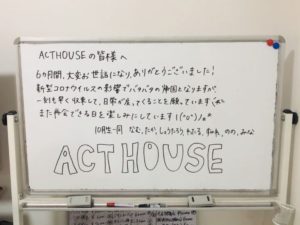 ACTHOUSEの皆様へ
6カ月間、大変お世話になり、ありがとうございました!
新型コロナウイルスの影響でバタバタの帰国となりますが、
一刻も早く収束して、日常が戻ってくることを願っています
また再会できる日を楽しみにしています!(^o^)/
10月生一同 なむ、たか、しょうたろう、わたる、かれん、のの、みな
ACTHOUSE